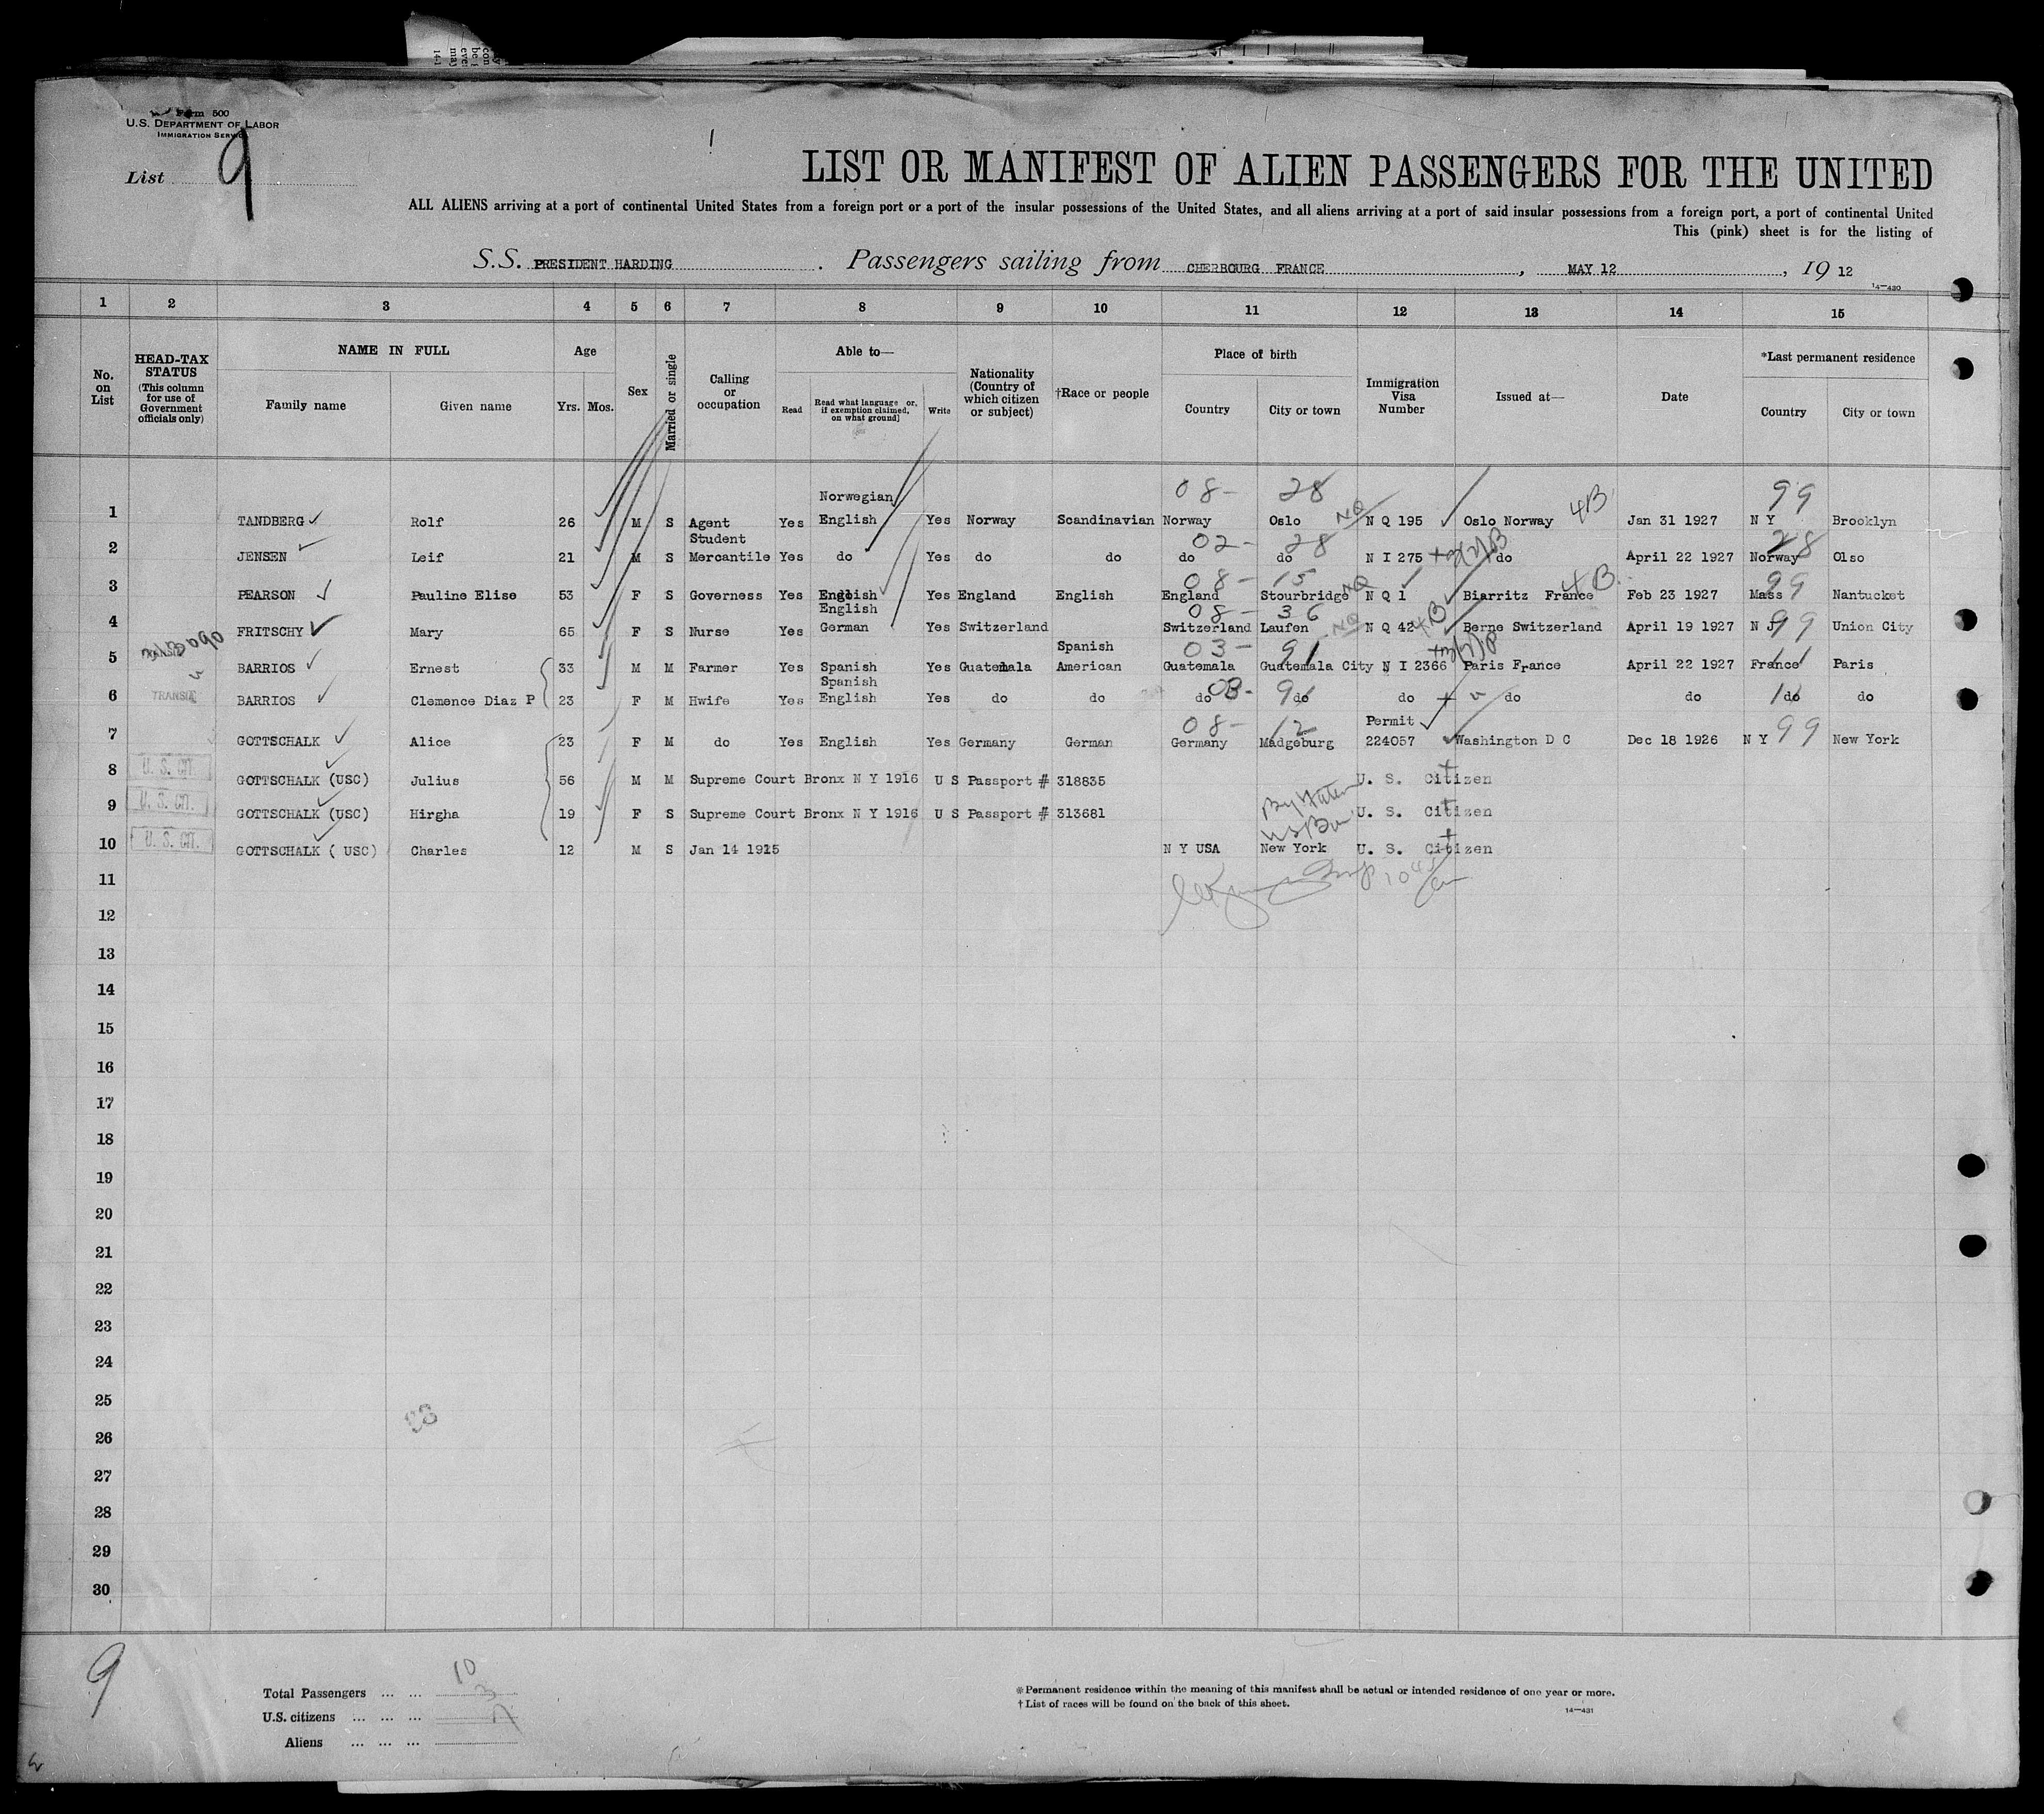 Form 500
U.S. DEPARTMENT OF LABOR
IMMIGRATION SERVICE
List 9
LIST OR MANIFEST OF ALIEN PASSENGERS FOR THE UNITED
ALL ALIENS arriving at a port of continental United States from a foreign port or a port of the insular possessions of the United States, and all aliens arriving at a port of said insular possessions from a foreign port, a port of continental United
This (pink) sheet is for the listing of
S.S. PRESIDENT HARDING . Passengers sailing from CHERBOURG FRANCE , MAY 12 , 19 12
14—430
1 2 3 4 5 6 7 8 9 10 11 12 13 14 15
No. on List
HEAD-TAX STATUS (This column for use of Government officials only)
NAME IN FULL
Family name Given name
Age
Yrs. Mos.
Sex
Married or single
Calling or occupation
Able to—
Read
Read what language or, if exemption claimed, on what ground]
Write
Nationality (Country of which citizen or subject)
†Race or people
Place of birth
Country City or town
Immigration Visa Number
Issued at—
Date
*Last permanent residence
Country City or town
08- 28 99
1 TANDBERG Rolf 26 M S Agent Yes Norwegian English Yes Norway Scandinavian Norway Oslo NQ N Q 195 Oslo Norway 4B Jan 31 1927 N Y Brooklyn
02- 28 28
2 JENSEN Leif 21 M S Student Mercantile Yes do Yes do do do do N I 275 do April 22 1927 Norway Olso
08- 15 99
3 PEARSON Pauline Elise 53 F S Governess Yes English Yes England English England Stourbridge NQ N Q 1 Biarritz France 4B Feb 23 1927 Mass Nantucket
08- 36 99
4 FRITSCHY Mary 65 F S Nurse Yes English German Yes Switzerland Switzerland Laufen NQ N Q 42 4B Berne Switzerland April 19 1927 N J Union City
03- 91 11
5 BARRIOS Ernest 33 M M Farmer Yes Spanish Yes Guatemala Spanish American Guatemala Guatemala City N I 2366 Paris France April 22 1927 France Paris
03- 91
6 TRANSIT BARRIOS Clemence Diaz P 23 F M Hwife Yes Spanish English Yes do do do do do do do do do
08- 12 99
7 GOTTSCHALK Alice 23 F M do Yes English Yes Germany German Germany Madgeburg Permit 224057 Washington D C Dec 18 1926 N Y New York
8 U. S. CIT. GOTTSCHALK (USC) Julius 56 M M Supreme Court Bronx N Y 1916 U S Passport # 318835 U. S. Citizen
9 U. S. CIT. GOTTSCHALK (USC) Hirgha 19 F S Supreme Court Bronx N Y 1916 U S Passport # 313681 U. S. Citizen
10 U. S. CIT. GOTTSCHALK ( USC) Charles 12 M S Jan 14 1915 N Y USA New York U. S. Citizen
11
12
13
14
15
16
17
18
19
20
21
22
23
24
25
26
27
28
29
30
9
Total Passengers ... ... 10
U.S. citizens ... ... ... 3
Aliens ... ... ... 7
*Permanent residence within the meaning of this manifest shall be actual or intended residence of one year or more.
†List of races will be found on the back of this sheet.
14—431